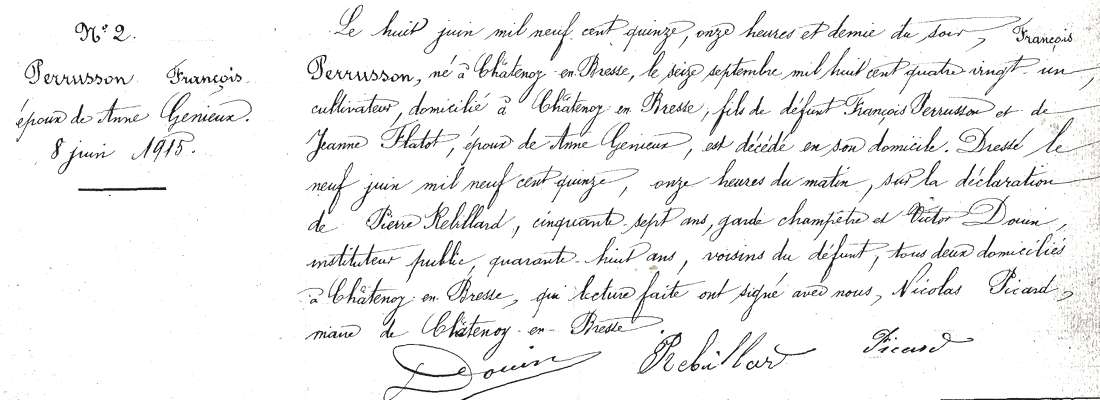 N° 2.
Perrusson François
époux de Anne Genieux.
8 juin 1915.
Le huit juin mil neuf cent quinze, onze heures et demie du soir, François
Perrusson, né à Châtenoy-en-Bresse, le seize septembre mil huit cent quatre vingt-un,
cultivateur, domicilié à Châtenoy en Bresse, fils de défunt François Perrusson et de
Jeanne Flatot, époux de Anne Genieux, est décédé en son domicile. Dressé le
neuf juin mil neuf cent quinze, onze heures du matin, sur la déclaration
de Pierre Rebillard, cinquante-sept ans, garde champêtre et Victor Douin,
instituteur public, quarante-huit ans, voisins du défunt, tous deux domiciliés
à Châtenoy-en-Bresse, qui lecture faite ont signé avec nous, Nicolas Picard,
maire de Châtenoy-en-Bresse.
Douin Rebillard Picard